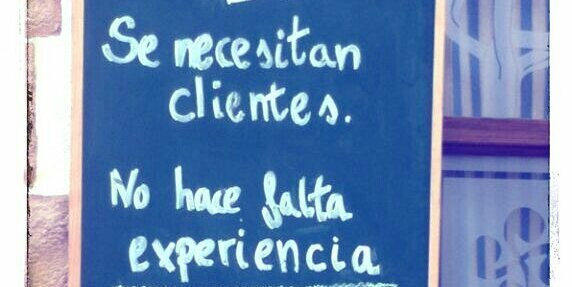 Se necesitan
clientes.
No hace falta
experiencia